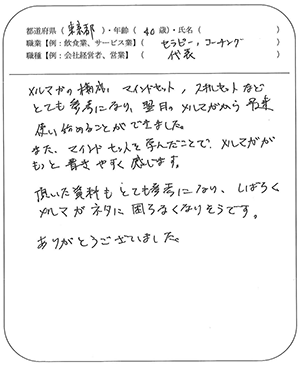 都道府県（東京都）・年齢（40歳）・氏名（　　　）
職業【例：飲食業、サービス業】（セラピー、コーチング）
職種【例：会社経営者、営業】（代表）
メルマガの構成、マインドセット、スキルセットなど
とても参考になり、翌日のメルマガから早速
使い始めることができました。
また、マインドセットを学んだことで、メルマガが
もっと書きやすく感じます。
頂いた資料もとても参考になり、しばらく
メルマガネタに困らなくなりそうです。
ありがとうございました。